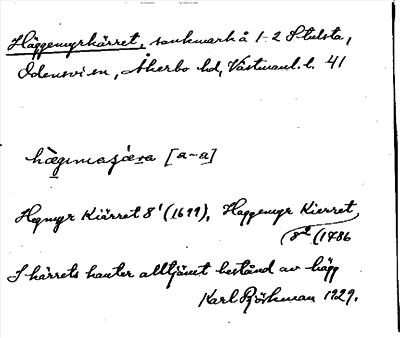 Häggemyrkärret, sankmark å 1-2 Stulsta,
Odensvi sn, Åkerbo hd, Västmanl. l. 41
hæ̀gǝmaʃæra [a-a]
Hegmyr Kiärret 8¹ (1699), Heggemyr Kierret
8² (1786
I kärrets kanter alltjämt bestånd av hägg
Karl Björkman 1929.